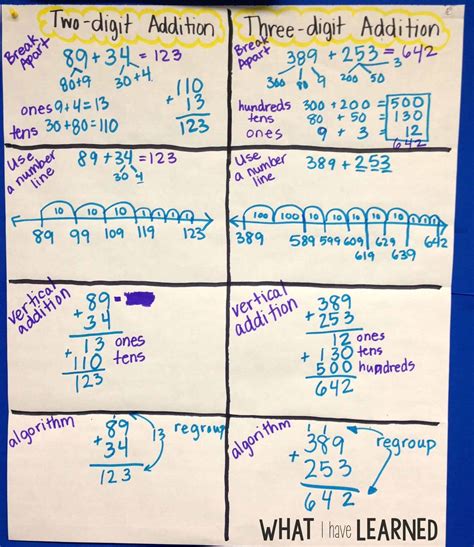 Two-digit Addition
Break Apart
89 + 34 = 123
80+9 30+4
ones 9+4=13
tens 30+80=110
110
+ 13
123
Three-digit Addition
Break Apart
389 + 253 = 642
300 80 9 200 50 3
hundreds 300 + 200 = 500
tens 80 + 50 = 130
ones 9 + 3 = 12
642
Use a number line
89 + 34 = 123
30 4
10 10 10 1 1 1 1
89 99 109 119 123
Use a number line
389 + 253
100 100 10 10 10 10 10 1 1 1
389 589 599 609 619 629 639 642
vertical addition
89 =
+ 34
13 ones
+ 110 tens
123
vertical addition
389
+ 253
12 ones
+ 130 tens
500 hundreds
642
algorithm
1
89
+ 34
123
13 regroup
algorithm
1 1
389
+ 253
642
regroup
WHAT I have LEARNED